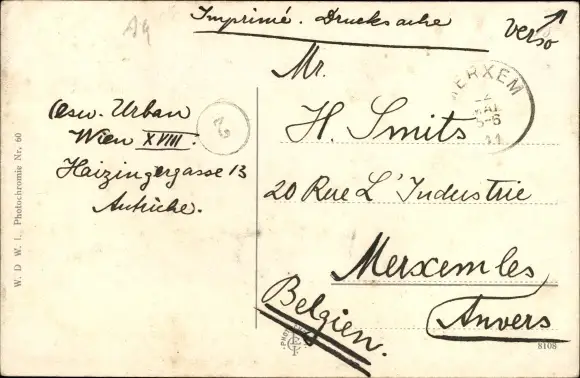 A4
Imprimé. Drucksache
Verso
Mr.
MERXEM
5-6
Osw. Urban
Wien XVIII.
Haizingergasse 13
Autriche.
H. Smits
20 Rue L'Industrie
Merxem les
Anvers
Belgien.
W. D W. I., Photochromie Nr. 60
8108